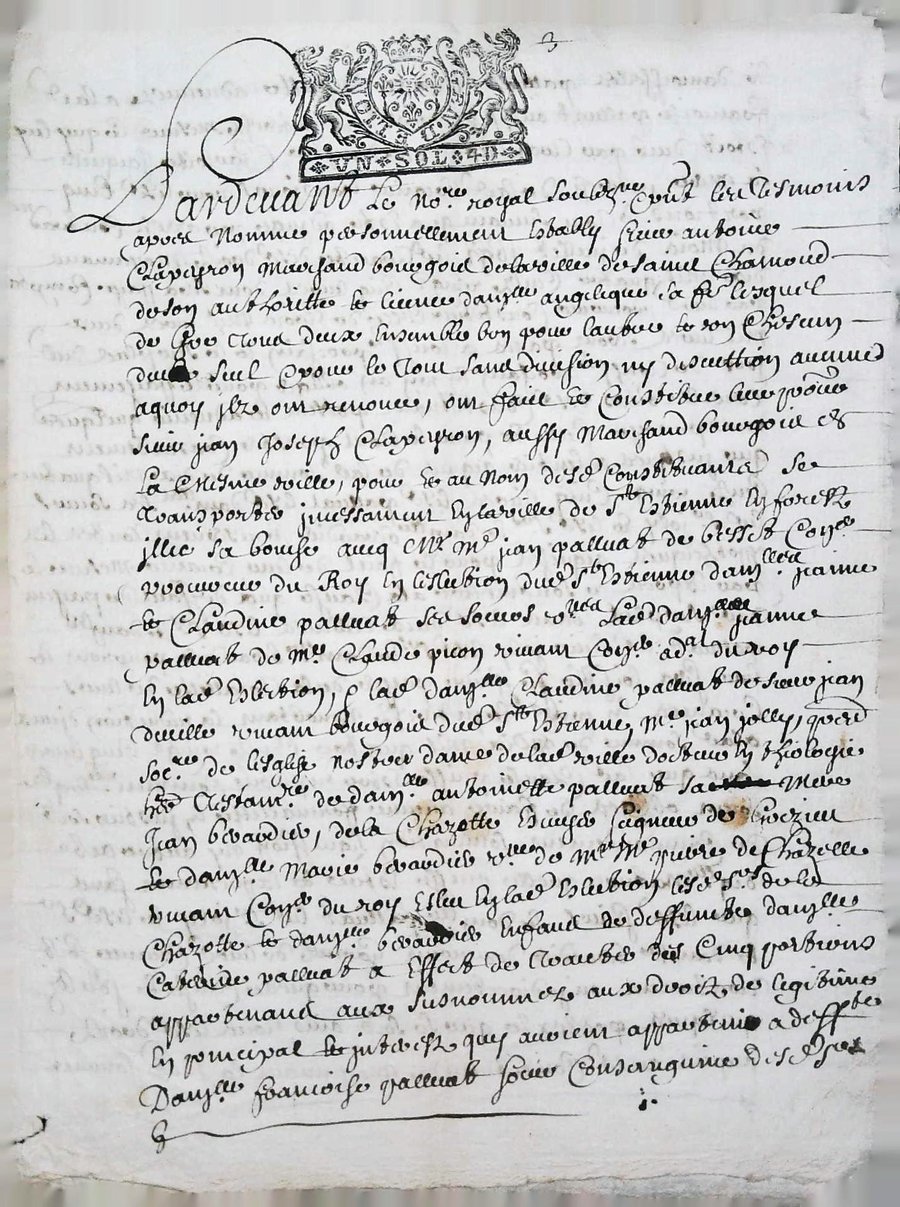 3
GEN. D. ET LION
VN SOL 4D
Pardevant Le no.re royal soubz.né & p̃nt les tesmoins
apres nommé personnellement estably sieur antoine
Clapeyron Marchand bourgois de la ville de saint Chamond
de son authoritte et licence dam.lle angelique sa fe lesquel
de gre tous deux ensemble bon pour lautre et un Chescun
deux seul & pour le tout sans division ny discuttion aucunes
aquoy jlz ont renoncé, ont fait et Constitué leur pro.eur
sieur jean Joseph Clapeyron, aussy Marchand bourgois de
La Mesme ville, pour et au nom desd Constituants se
transporter jncessament en la ville de S.t Estienne en forest
jllec sa bouche avecq Mr. M.e jean palluat de besset Con.er
procureur du Roy en leslection dud S.t Estienne dam.lles jeanne
et Claudine palluat ses soeurs v.ves Lad dam.lle jeanne
palluat de M.e Claude picon vivant Con.er ad.at du roy
en lad Eslection, & lad dam.lle Claudine palluat de sieur jean
deville vivant bourgois dud S.t Estienne, M.e jean jolly,
soc.re de lesglise nostre dame de lad ville docteur en theologie
her testam.re de dam.lle antoinette palluat sa Mere
Jean berardier, de la Chazotte Escuyer seigneur de
et dam.lle Marie berardier v.ve de Mr. Me pierre de Chazelle
vivant Con.er du roy Esleu en lad Eslection lesd s.rs de la
Chazotte et dam.lle berardier Enfans de deffuncte dam.lle
Caterine palluat a Effect de traitter des Cinq portions
appartenant aux susnommez aux droit de legitime
En principal et jnterestz quy avoient appartenu a deff.te
Dam.lle francoise palluat soeur Consanguine desd s.rs